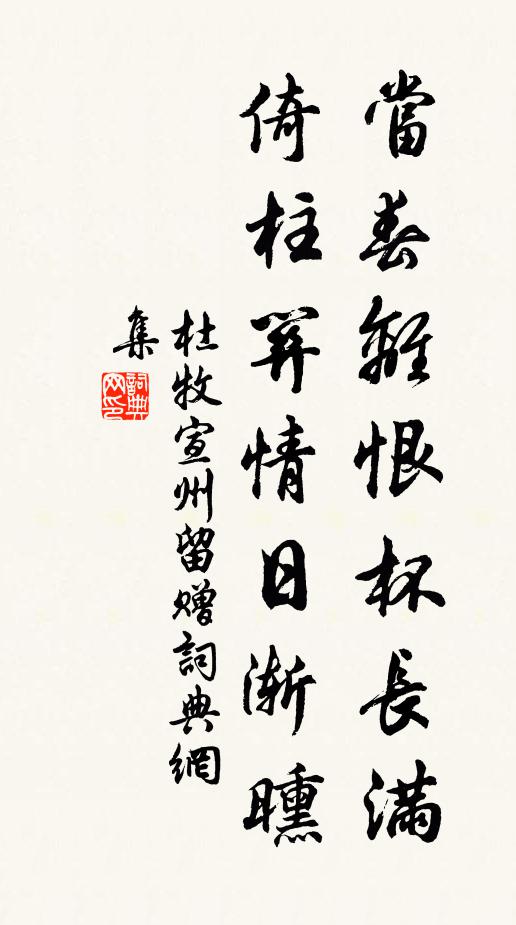 當春離恨杯長滿
倚柱关情日漸曛
杜牧宣州留贈詞典網
集
詞典
网印